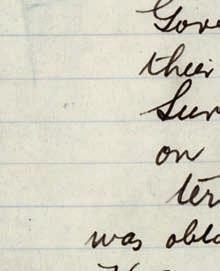 Gove
their
Sur
on
ter
was obta